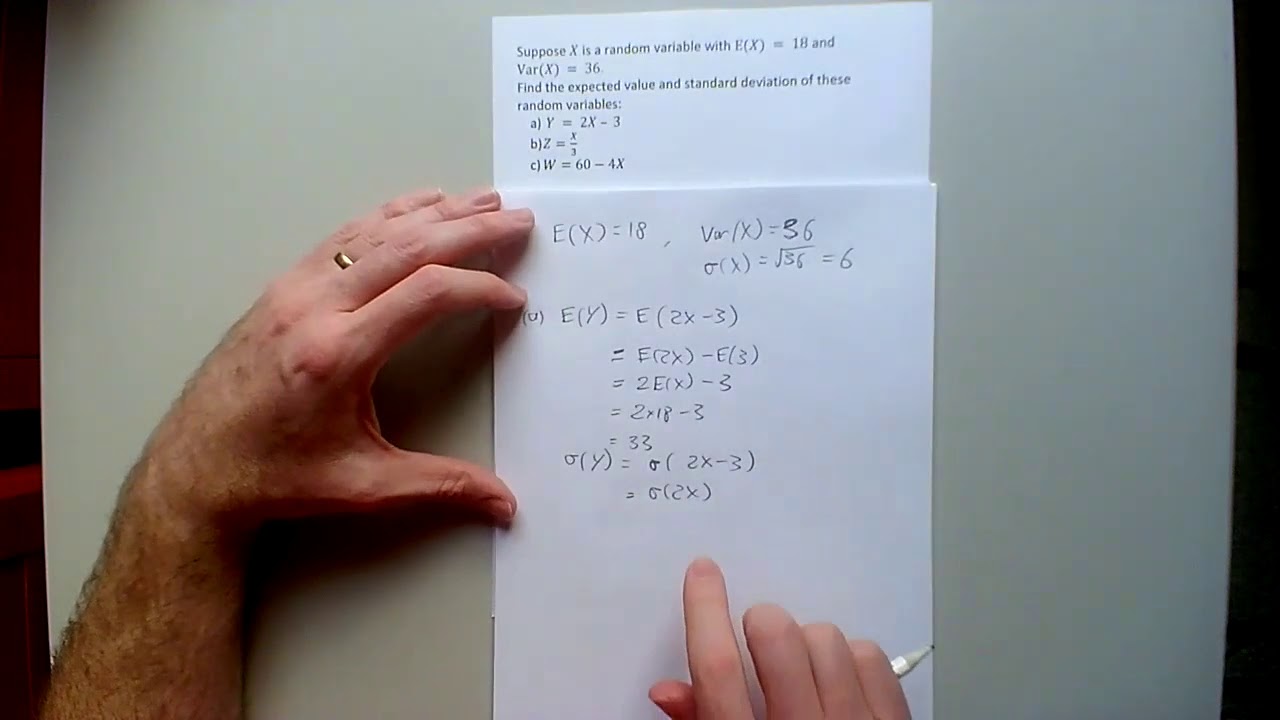 Suppose X is a random variable with E(X) = 18 and
Var(X) = 36.
Find the expected value and standard deviation of these
random variables:
a) Y = 2X – 3
b)Z = X/3
c) W = 60 – 4X
E(X) = 18 , Var(X) = 36
σ(X) = √36 = 6
(a) E(Y) = E(2X-3)
= E(2X) - E(3)
= 2E(X) - 3
= 2×18 - 3
= 33
σ(Y) = σ(2X-3)
= σ(2X)